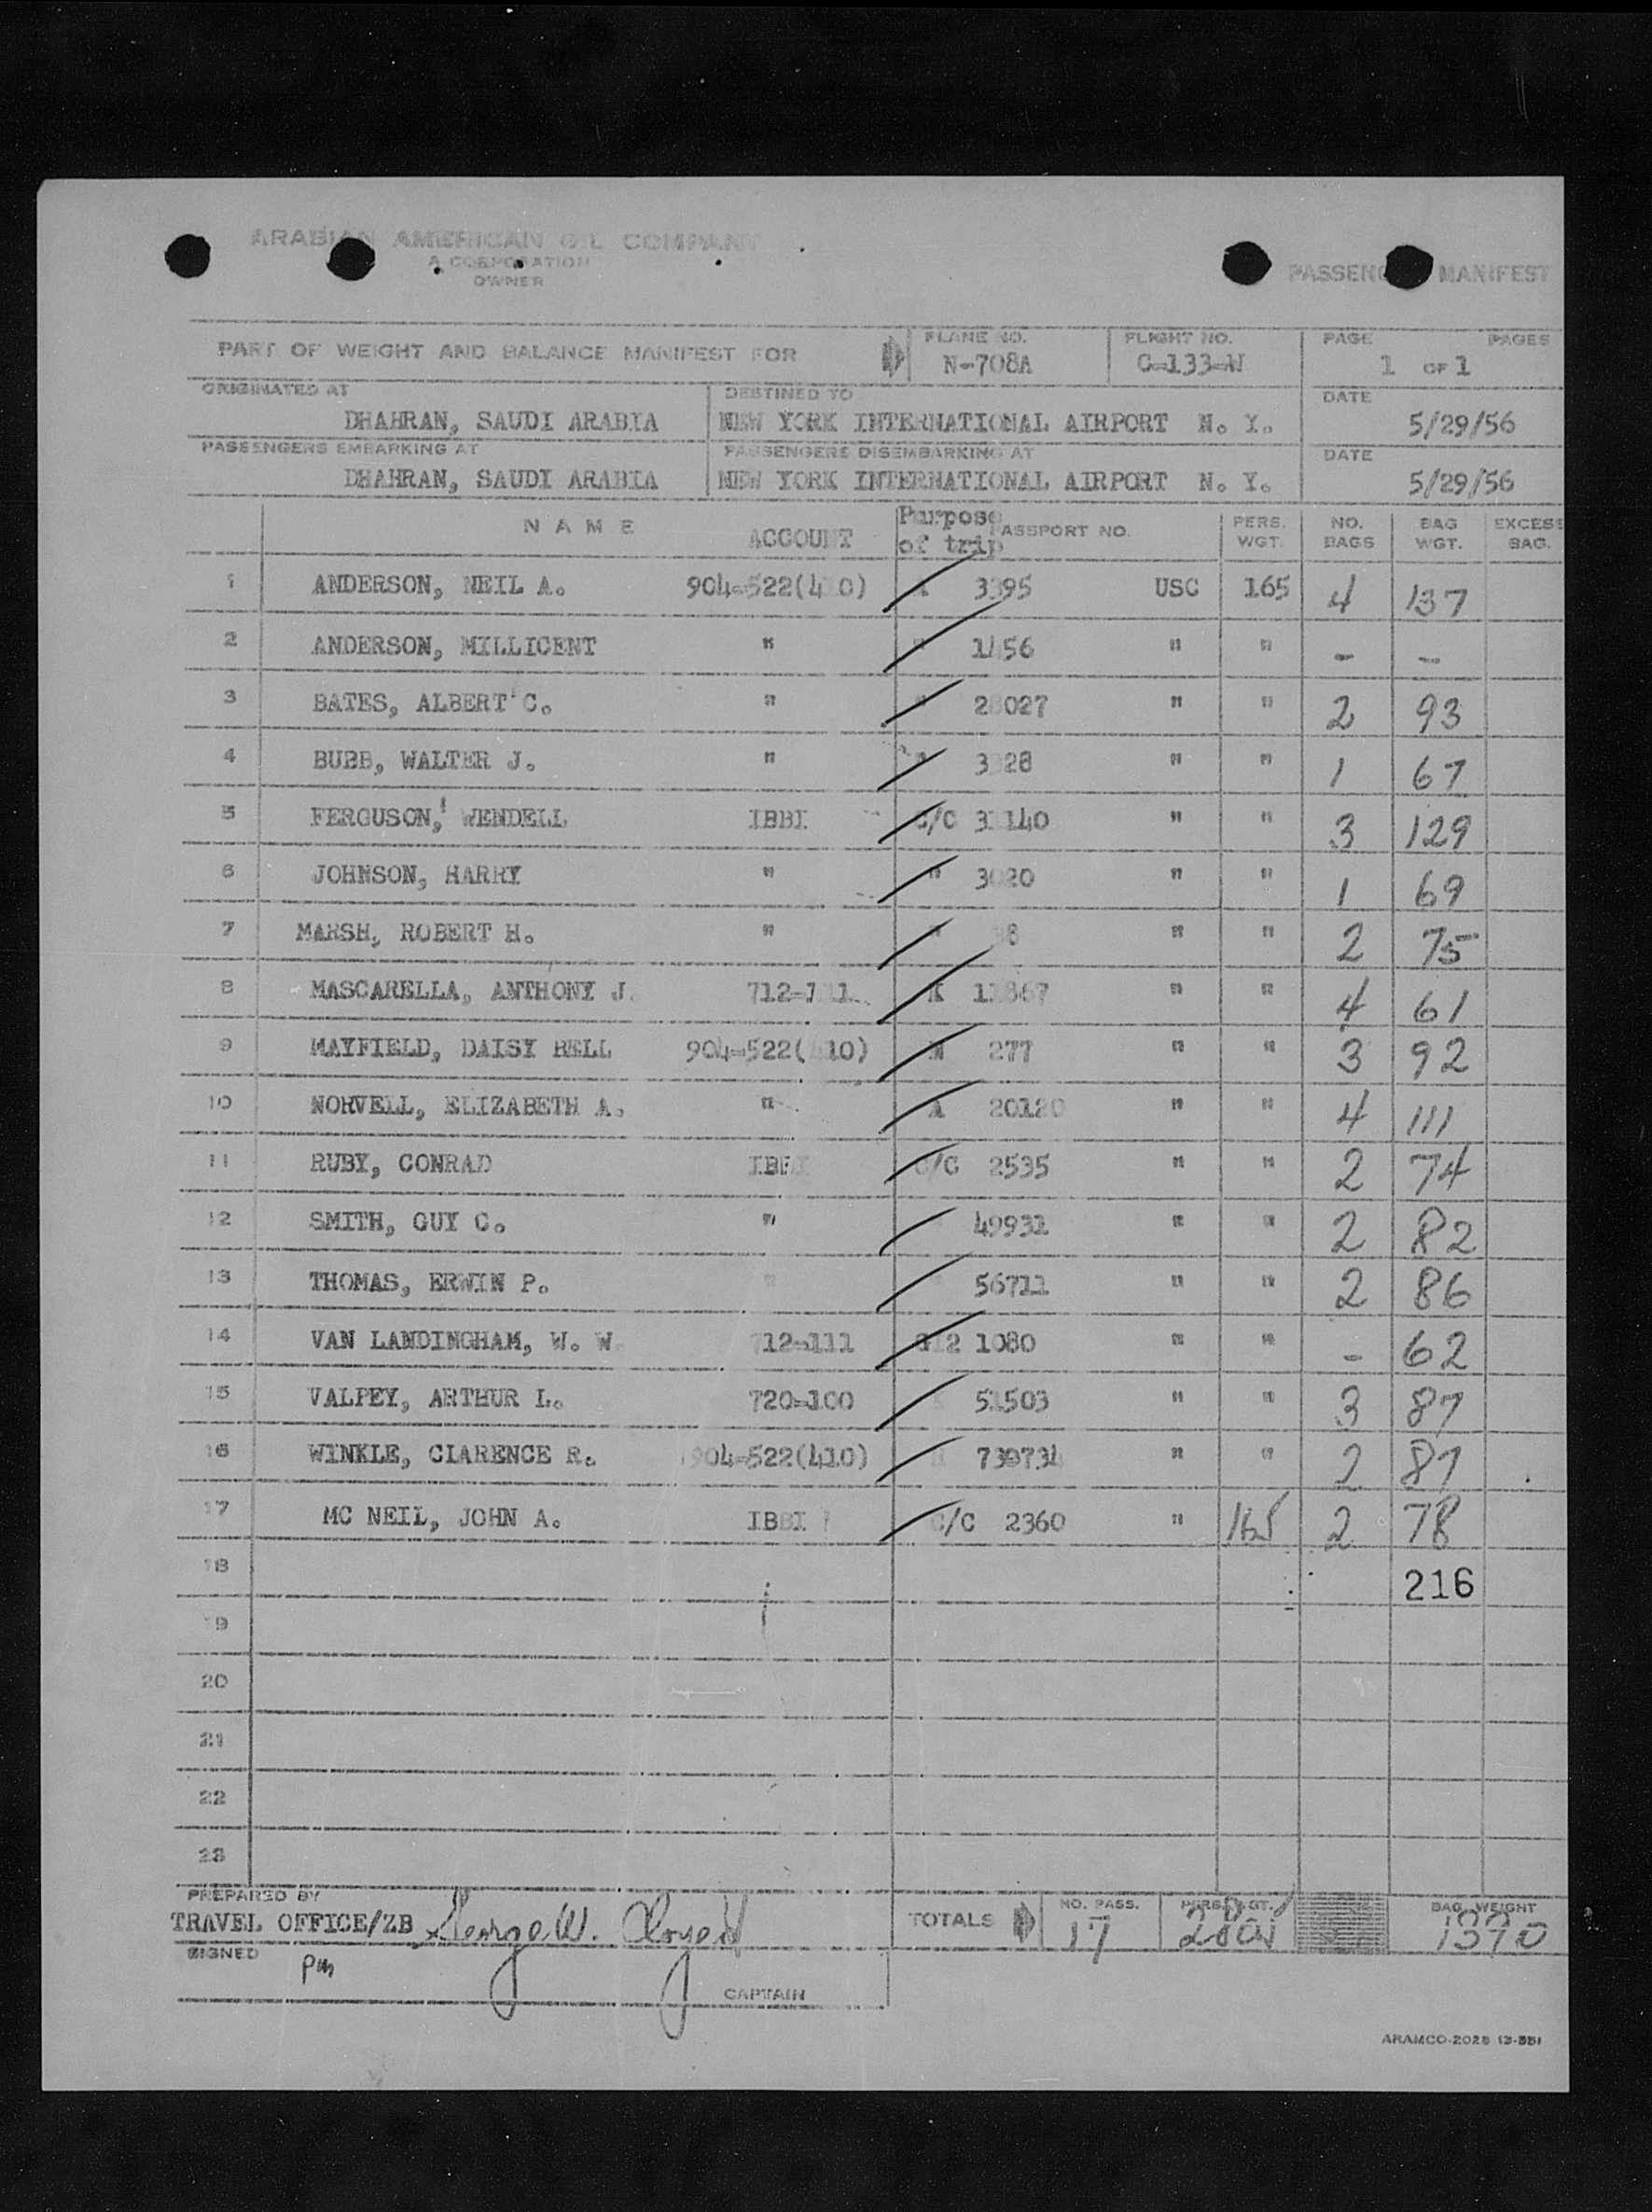 ARABIAN AMERICAN OIL COMPANY
A CORPORATION
OWNER
PASSENGER MANIFEST
PART OF WEIGHT AND BALANCE MANIFEST FOR
PLANE NO.
N-708A
FLIGHT NO.
C-133-W
PAGE PAGES
1 OF 1
ORIGINATED AT
DHAHRAN, SAUDI ARABIA
DESTINED TO
NEW YORK INTERNATIONAL AIRPORT N. Y.
DATE
5/29/56
PASSENGERS EMBARKING AT
DHAHRAN, SAUDI ARABIA
PASSENGERS DISEMBARKING AT
NEW YORK INTERNATIONAL AIRPORT N. Y.
DATE
5/29/56
NAME ACCOUNT Purpose of trip PASSPORT NO. PERS. WGT. NO. BAGS BAG WGT. EXCESS BAG.
1 ANDERSON, NEIL A. USC 165 4 137
2 ANDERSON, MILLICENT " " " - -
3 BATES, ALBERT C. " " " 2 93
4 BUBB, WALTER J. " " " 1 67
5 FERGUSON, WENDELL IBBI " " 3 129
6 JOHNSON, HARRY " " " " 1 69
7 MARSH, ROBERT H. " " " " 2 75
8 MASCARELLA, ANTHONY J. " " 4 61
9 MAYFIELD, DAISY BELL 277 " " 3 92
10 NORVELL, ELIZABETH A. " 20120 " " 4 111
11 RUBY, CONRAD C/C 2535 " " 2 74
12 SMITH, GUY C. " 49931 " " 2 82
13 THOMAS, ERWIN P. " 56711 " " 2 86
14 VAN LANDINGHAM, W. W. 712-111 1080 " " - 62
15 VALPEY, ARTHUR L. 720-100 51503 " " 3 87
16 WINKLE, CLARENCE R. 904-522(410) " " 2 87
17 MC NEIL, JOHN A. IBBI C/C 2360 " 165 2 78
18 216
19
20
21
22
23
PREPARED BY
TRAVEL OFFICE/ZB George W.
SIGNED
pm
CAPTAIN
TOTALS
NO. PASS.
17
PERS. WGT.
BAG WEIGHT
1390
ARAMCO-2028 (3-55)